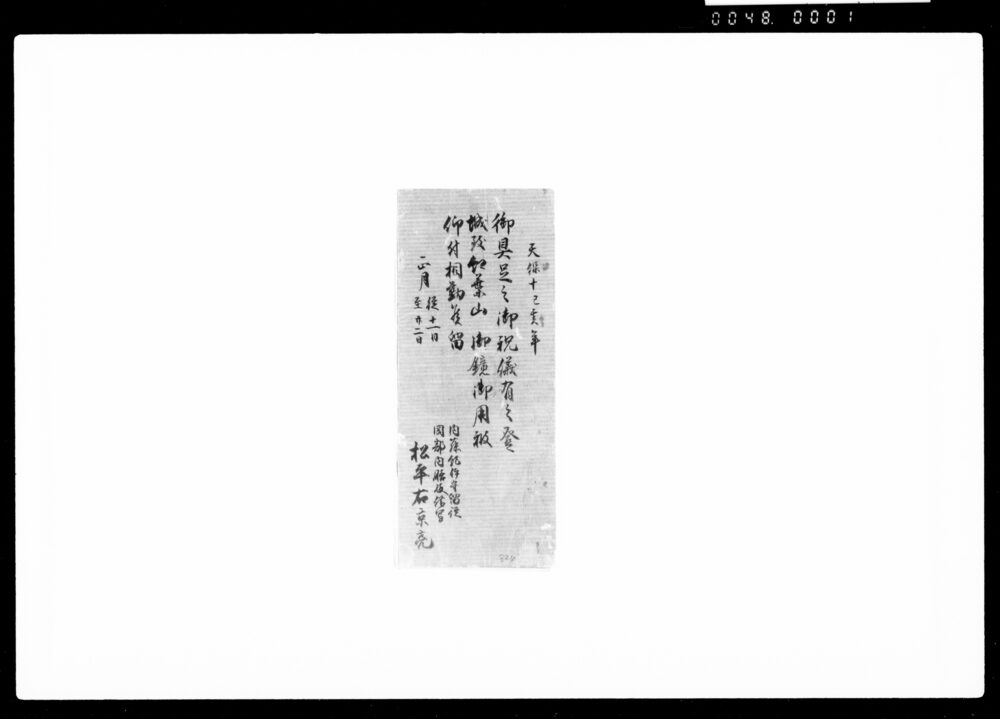 0048. 0001
天保十己亥年
御具足之御祝儀有之登
城致紅葉山御鏡御用被
仰付相勤候留
正月
従十一日
至廿二日
内藤紀伊守
岡部内膳
松平右京亮